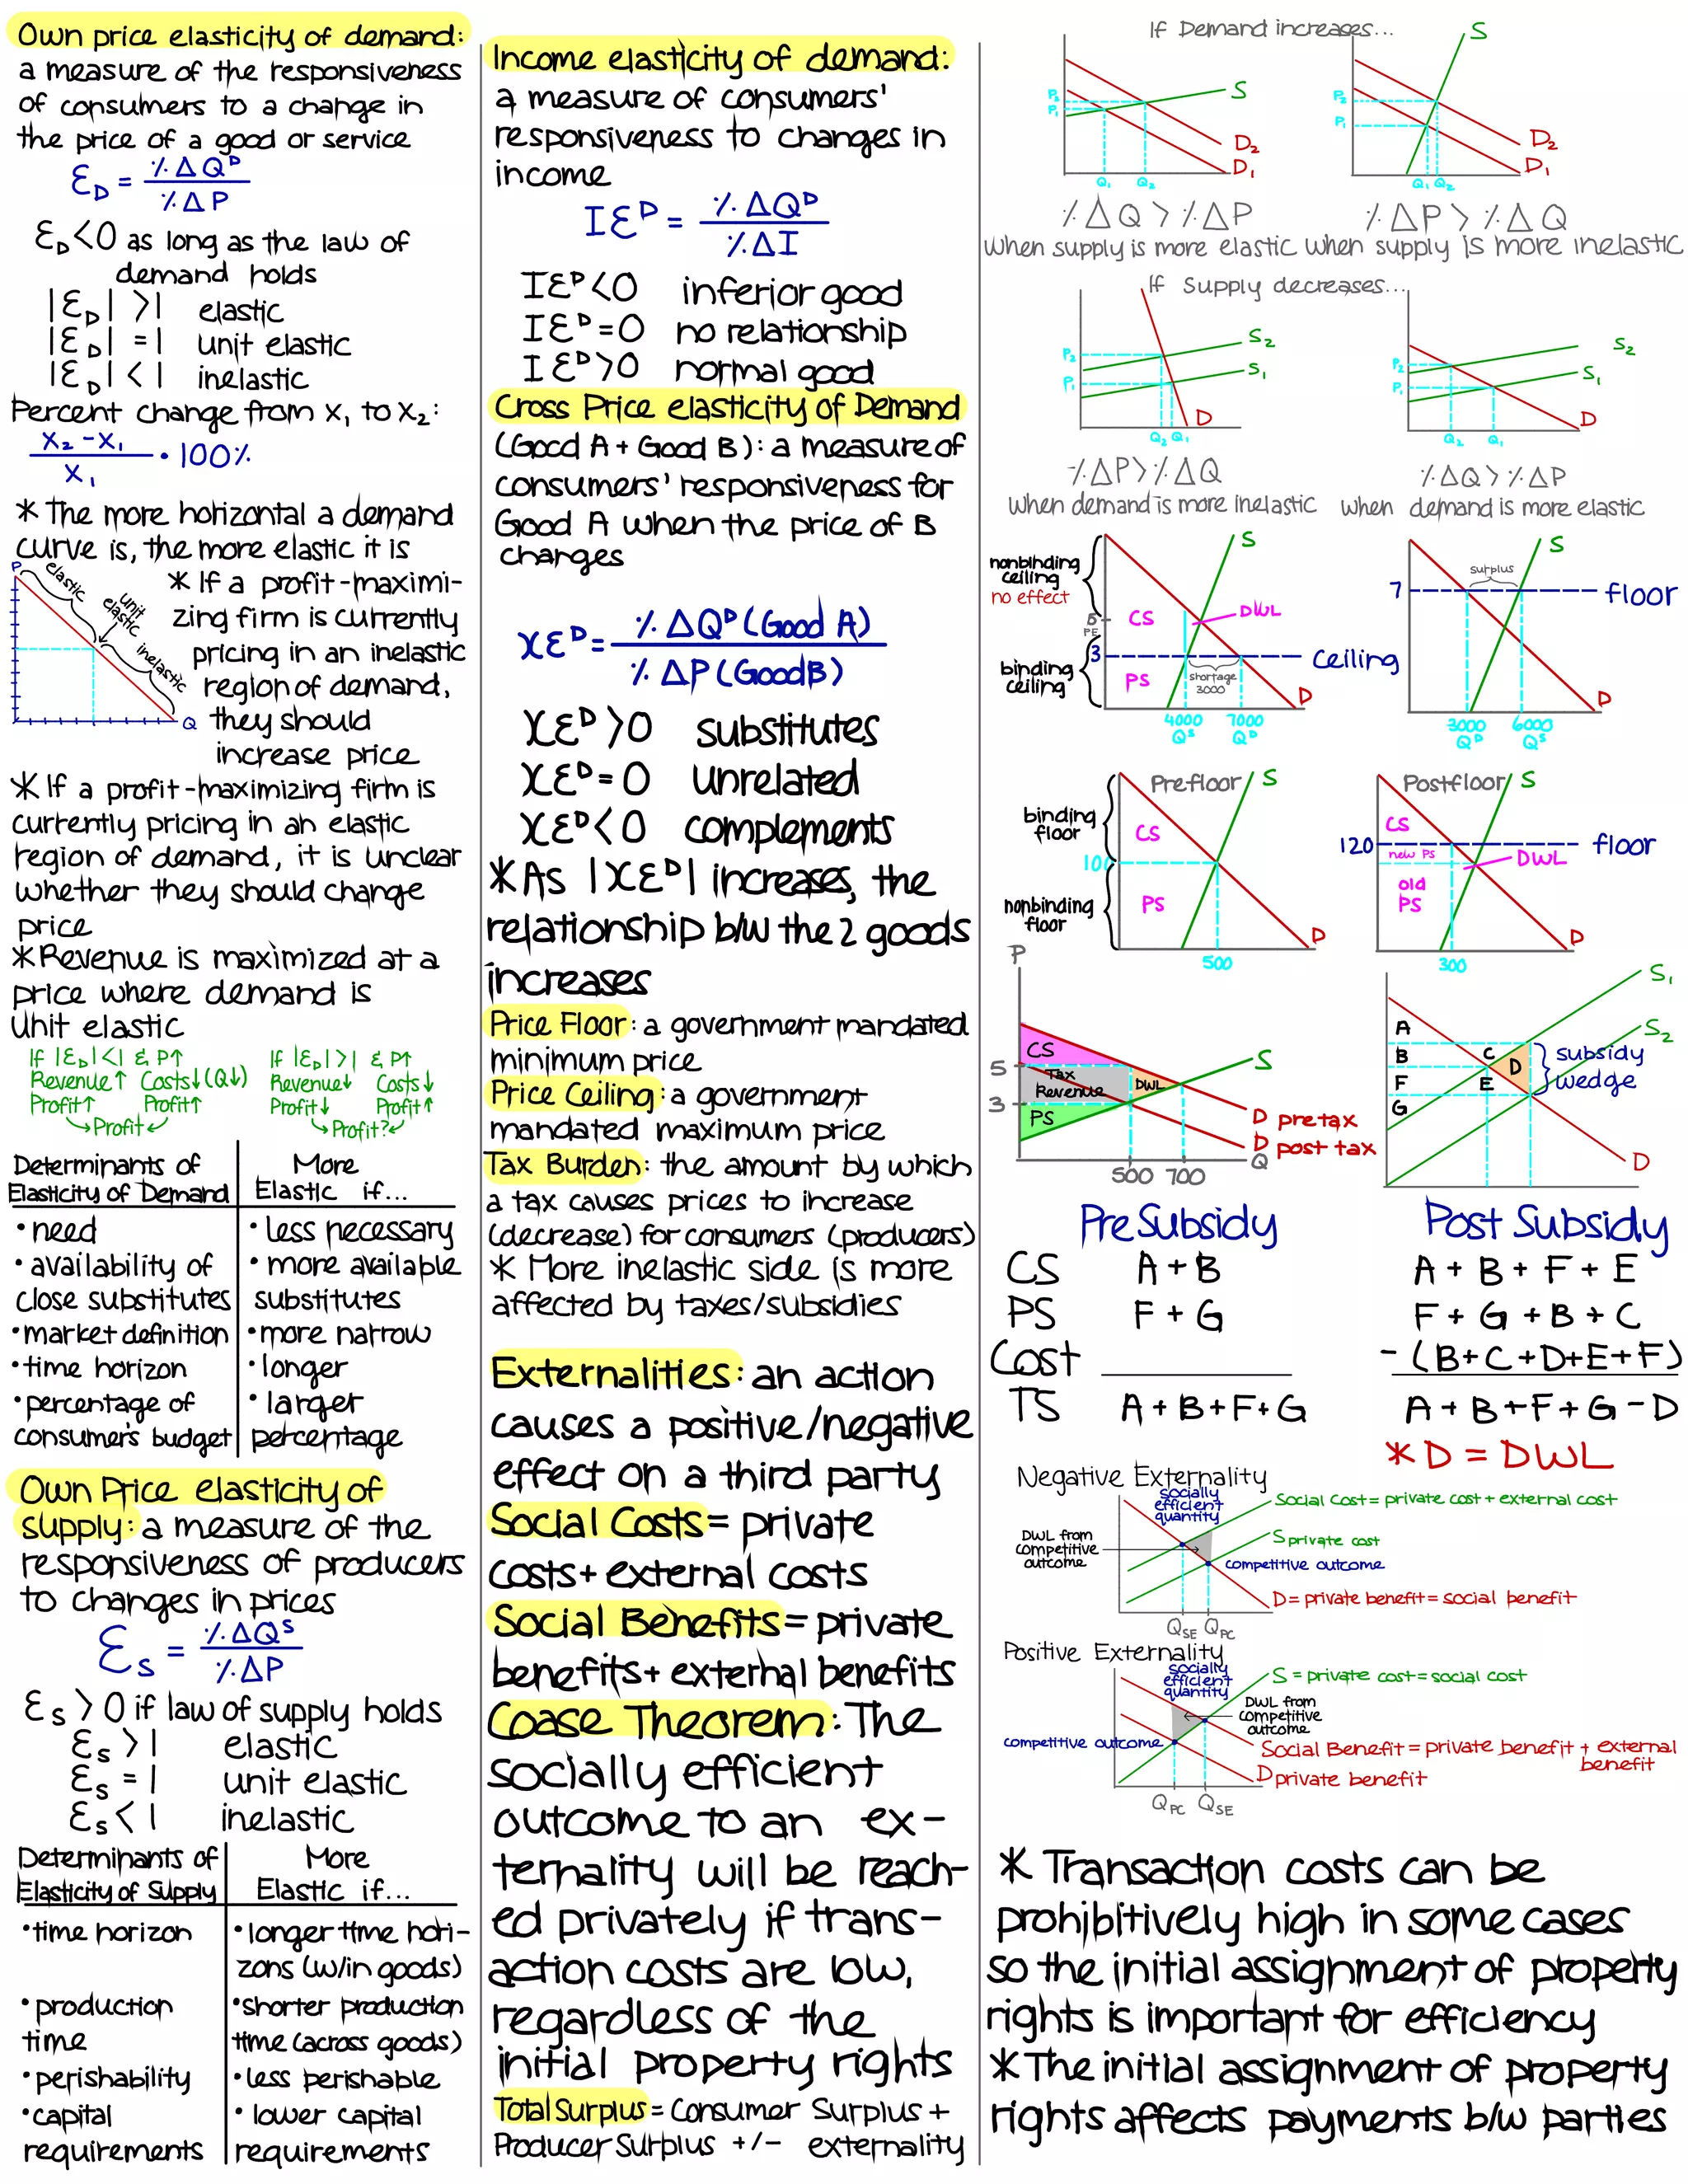 Own price elasticity of demand:
a measure of the responsiveness
of consumers to a change in
the price of a good or service
Ɛ_D = %ΔQ^D / %ΔP
Ɛ_D<0 as long as the law of
demand holds
|Ɛ_D| >1 elastic
|Ɛ_D| =1 unit elastic
|Ɛ_D| <1 inelastic
Percent change from x₁ to x₂:
(x₂ - x₁) / x₁ • 100%
* The more horizontal a demand
curve is, the more elastic it is
P
elastic
unit
elastic
inelastic
Q
* If a profit-maximi-
zing firm is currently
pricing in an inelastic
region of demand,
they should
increase price
* If a profit-maximizing firm is
currently pricing in an elastic
region of demand, it is unclear
whether they should change
price
* Revenue is maximized at a
price where demand is
unit elastic
If |Ɛ_D|<1 & P↑
Revenue↑ Costs↓(Q↓)
Profit↑ Profit↑
→Profit←
If |Ɛ_D|>1 & P↑
Revenue↓ Costs↓
Profit↓ Profit↑
→Profit?←
Determinants of Elasticity of Demand
More Elastic if...
• need
• less necessary
• availability of close substitutes
• more available substitutes
• market definition
• more narrow
• time horizon
• longer
• percentage of consumer's budget
• larger percentage
Own Price elasticity of
supply: a measure of the
responsiveness of producers
to changes in prices
Ɛ_S = %ΔQ^S / %ΔP
Ɛ_S > 0 if law of supply holds
Ɛ_S >1 elastic
Ɛ_S =1 unit elastic
Ɛ_S <1 inelastic
Determinants of Elasticity of Supply
More Elastic if...
• time horizon
• longer time hori-
zons (w/in goods)
• production time
• shorter production
time (across goods)
• perishability
• less perishable
• capital requirements
• lower capital requirements
Income elasticity of demand:
a measure of consumers'
responsiveness to changes in
income
IƐ^D = %ΔQ^D / %ΔI
IƐ^D<0 inferior good
IƐ^D=0 no relationship
IƐ^D>0 normal good
Cross Price elasticity of Demand
(Good A + Good B): a measure of
consumers' responsiveness for
Good A when the price of B
changes
XƐ^D = %ΔQ^D (Good A) / %ΔP (Good B)
XƐ^D>0 substitutes
XƐ^D=0 unrelated
XƐ^D<0 complements
* As |XƐ^D| increases, the
relationship b/w the 2 goods
increases
Price Floor: a government mandated
minimum price
Price Ceiling: a government
mandated maximum price
Tax Burden: the amount by which
a tax causes prices to increase
(decrease) for consumers (producers)
* More inelastic side is more
affected by taxes/subsidies
Externalities: an action
causes a positive/negative
effect on a third party
Social Costs = private
costs + external costs
Social Benefits = private
benefits + external benefits
Coase Theorem: The
socially efficient
outcome to an ex-
ternality will be reach-
ed privately if trans-
action costs are low,
regardless of the
initial property rights
Total Surplus = Consumer Surplus +
Producer Surplus +/- externality
If Demand increases...
P₂ P₁ S D₂ D₁ Q₁ Q₂
P₂ P₁ S D₂ D₁ Q₁ Q₂
%ΔQ > %ΔP
when supply is more elastic
%ΔP > %ΔQ
when supply is more inelastic
If Supply decreases...
P₂ P₁ S₂ S₁ D Q₂ Q₁
P₂ P₁ S₂ S₁ D Q₂ Q₁
%ΔP > %ΔQ
when demand is more inelastic
%ΔQ > %ΔP
when demand is more elastic
nonbinding
ceiling
no effect
5
PE
3
binding
ceiling
CS
PS
DWL
S
Ceiling
shortage
3000
D
4000 7000
Q^S Q^D
surplus
S
7
floor
D
3000 6000
Q^D Q^S
Prefloor
S
binding
floor
CS
100
nonbinding
floor
PS
D
500
Postfloor
S
CS
120
floor
new PS
DWL
old
PS
D
300
P
CS
5
Tax
Revenue
DWL
3
PS
S
D pre tax
D post tax
Q
500 700
S₁
S₂
A
B
C
D
F
E
G
subsidy
wedge
D
Pre Subsidy Post Subsidy
CS A + B A + B + F + E
PS F + G F + G + B + C
Cost - (B+C+D+E+F)
TS A + B + F + G A + B + F + G - D
* D = DWL
Negative Externality
socially
efficient
quantity
Social Cost = private cost + external cost
DWL from
competitive
outcome
S private cost
competitive outcome
D = private benefit = social benefit
Q_SE Q_PC
Positive Externality
socially
efficient
quantity
S = private cost = social cost
DWL from
competitive
outcome
competitive outcome
Social Benefit = private benefit + external
benefit
D private benefit
Q_PC Q_SE
* Transaction costs can be
prohibitively high in some cases
so the initial assignment of property
rights is important for efficiency
* The initial assignment of property
rights affects payments b/w parties